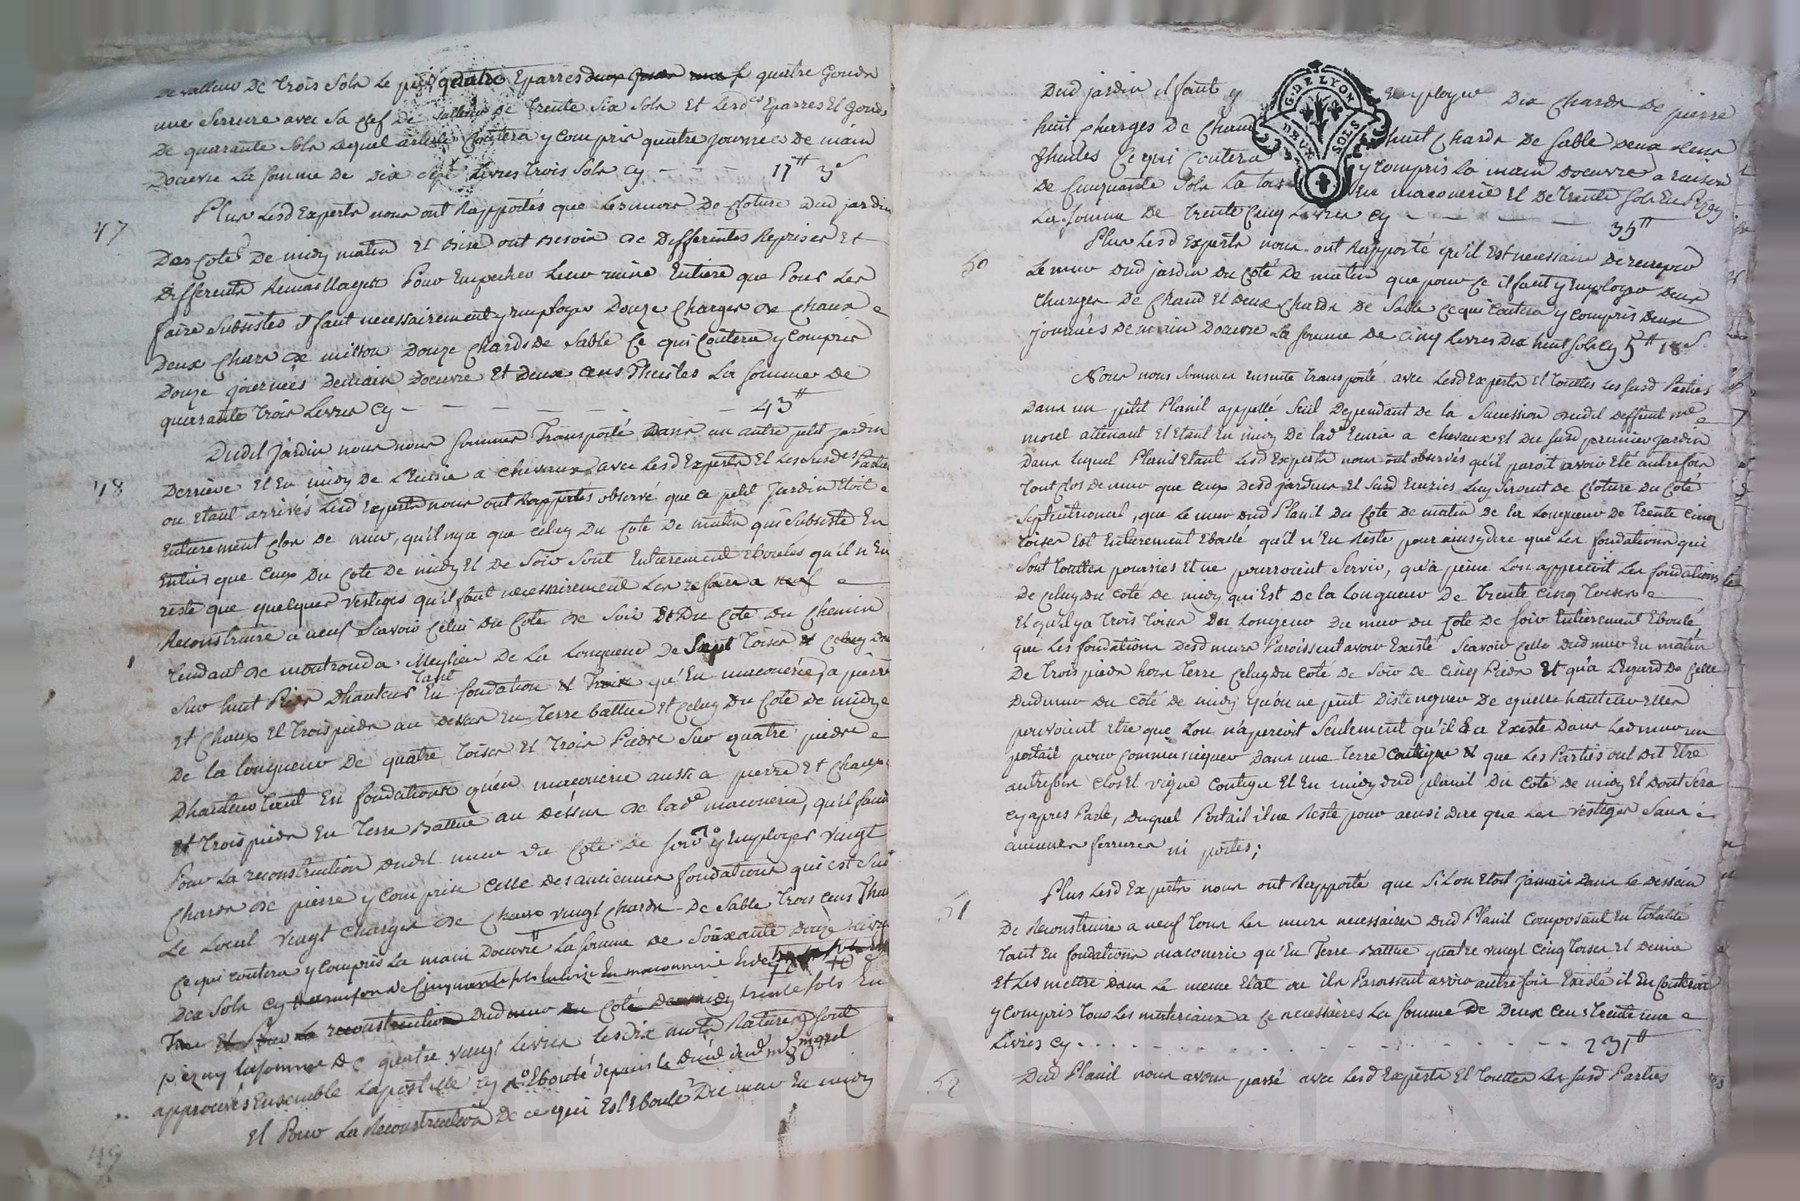 de valleur de trois sols le pied quatre Eparres quatre Gonds
une serrure avec sa clef de valleur de trente six sols et lesd. Eparres et gonds
de quarante sols lequel article Coutera y compris quatre journées de main
doeuvre la somme de dix sept Livres trois sols cy - - - 17tt 3s
47
Plus Lesd Experts nous ont Rapportés que Les murs de Cloture dud jardin
des Cotés de midy matin et bise ont besoin de differentes Reprises et
differents Remaillages pour Empecher Leur ruine Entiere que pour Les
faire subsister il faut necessairement y employer douze Charges de Chaux
deux Chars de douze Chards de sable Ce qui Coutera y compris
douze journées de main doeuvre et deux cens Thuiles La somme de
quarante trois Livres Cy - - - - - 43tt
48
Dudit jardin nous nous sommes Transporté dans un autre petit jardin
derriere et En midy de L'Ecurie a Chevaux avec Lesd Experts et Les susdes Parties
ou Etant arrivés Lesd Experts nous ont Rapportés observé que ce petit Jardin Etoit
Entierement Clos de mur, qu'il n'y a que celuy du Coté de matin qui subsiste En
Entier que Ceux du Coté de midy et de soir sont Entierement Eboulés qu'il n'En
reste que quelques vestiges qu'il faut necessairement Les refaire a neuf
Reconstruire a neuf Scavoir Celui du Coté de soir Et Du Coté du Chemin
tendant de montrond a Meylieu De La Longueur de Sept Toises et Celuy du
sur huit Pieds d'hauteur tant En fondation qu'En maconerie a pierre
et Chaux et trois pieds au dessus En Terre battue et Celuy du Coté de midy
de la longueur de quatre Toises et trois Pieds sur quatre pieds
d'hauteur tant En fondations qu'en maconerie aussi a pierre et Chaux
et trois pieds En Terre Battue au dessus de lade maconerie, qu'il faut
pour la reconstruction dudit mur du Coté de soir y Employer vingt
Chards de pierre y compris celle des anciennes fondations qui est sur
Le Local vingt Charges de Chaux vingt Chards de sable trois cens
Ce qui Coutera y compris la main doeuvre La somme de Soixante douze Livres
dix sols Cy a raison de Cinquante sols la toise En maconnerie
Et Pour La reconstruction dud mur du Coté de midy trente sols En
pizay la somme de quatre vingt Livres les dix mots Raturés sont
approuvés Ensemble Lapostille cy Eboulé depuis le
49
Et Pour La Reconstruction de ce qui Est Eboulé Du mur En midy
G. DE LYON
DEUX SOLS
Dud jardin il faut y Employer dix Chards de pierre
huit Charges de Chaux huit Chards de sable deux cens
Thuiles Ce qui Coutera y Compris la main doeuvre a raison
de Cinquante sols La toise En maconerie et de trente sols En Pizay
La somme de trente Cinq Livres Cy - - - - 35tt
50
Plus Lesd Experts nous ont Rapporté qu'il Est necessaire de recrepir
Le mur dud jardin du Coté de matin que pour ce il faut y Employer deux
Charges de Chaud et deux Chards de sable Ce qui Coutera y compris deux
journées de main doeuvre La somme de Cinq Livres dix huit sols cy 5tt 18s
Nous nous sommes ensuite transporté avec Lesd Experts et toutes Les susd Parties
dans un petit Planil appellé Seul Dependant de la Sucession dudit deffunt mre
morel attenant et Etant En midy de lade Ecurie a Chevaux et du susd premier jardin
dans lequel Planil Etant Lesd Experts nous ont observés qu'il paroit avoir Eté autrefois
tout Clos de mur que Ceux desd jardins et susd Ecuries Luy servent de Cloture du Coté
septentrional, que Le mur dud Planil du Coté de matin de la Longueur de trente Cinq
toises Est Entierement Eboulé qu'il n'En Reste pour ainsy dire que Les fondations qui
sont toutes pourries et ne pourroient servir, qu'a peine Lon apperçoit Les fondations
de Celuy du Coté de midy qui Est de la Longueur de trente Cinq toises
et qu'il y a trois toises de Longueur du mur du Coté de soir Entierement Eboulé,
que Les fondations desd murs Paroissent avoir Existé Scavoir Celle dud mur En matin
de trois pieds hors terre Celuy du Coté de soir de Cinq Pieds et qu'a L'Egard de Celle
dud mur du Coté de midy qu'on ne peut distinguer de quelle hauteur Elles
pouvoient etre que Lon n'aperçoit seulement qu'il a Existé dans Led mur un
portail pour Communiquer dans une terre Contigue et que Les Parties ont dit Etre
autrefois Clos et vigne Contigu et En midy dud planil du Coté de midy et dont sera
cy apres Parlé, duquel Portail il ne Reste pour ainsi dire que Les vestiges sans
aucunes ferrures ni portes;
51
Plus Lesd Experts nous ont Rapporté que Si Lon Etoit jamais dans Le dessein
de Reconstruire a neuf tous Les murs necessaires dud Planil Composant En totalité
tant En fondations maconerie qu'En Terre Battue quatre vingt Cinq toises et demie
et Les mettre dans Le meme Etat ou ils Paroissent avoir autrefois Existé il En Couteroit
y compris tous les materiaux a ce necessaires La somme de Deux cens trente une
Livres Cy - - - - - 231tt
52
Dud Planil nous avons passé avec Lesd Experts et toutes Les susd Parties